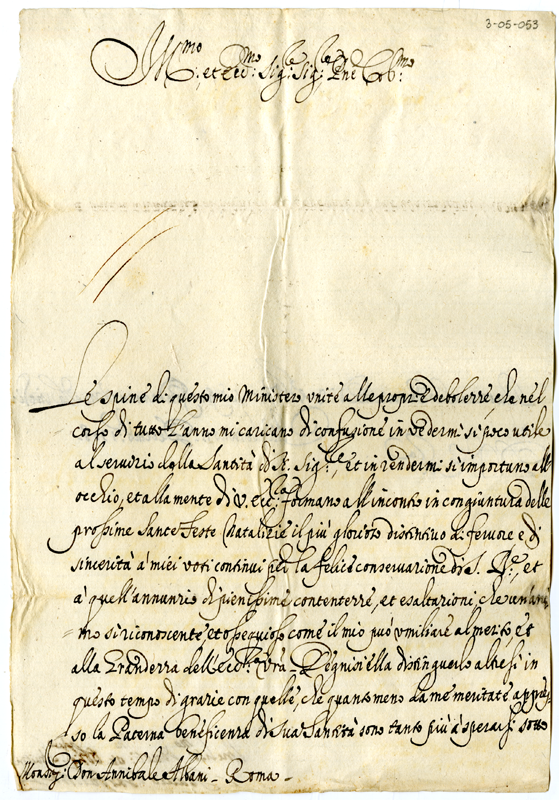 3-05-053
Ill.mo, et Ecc.mo Sig.re Sig.re Pne Col.mo
Le spine di questo mio Ministero unite alle proprie debolezze, che nel
corso di tutto l'anno mi caricano di confusione in vedermi si poco utile
al servizio della Santità di N. Sig.re, et in rendermi si importuno all'
occhio, et alla mente di V. Ecc.za formano all'incontro in congiuntura delle
prossime Sante Feste Natalizie il più glorioso distintivo di fervore e di
sincerità à miei voti continui per la felice conservazione di S. B.ne, et
à quell'annunzio di pienissime contentezze, et esaltazioni, che un ani
mo si riconoscente, et ossequioso come il mio può umiliare al merito, et
alla Grandezza dell'Ecc.za Vra. Degnisi ella distinguerlo altresi in
questo tempo di grazie con quelle, che quanto meno da me meritate appres
so la Paterna beneficenza di Sua Santità sono tanto più à sperarsi sotto
Monsig.r Don Annibale Albani - Roma -